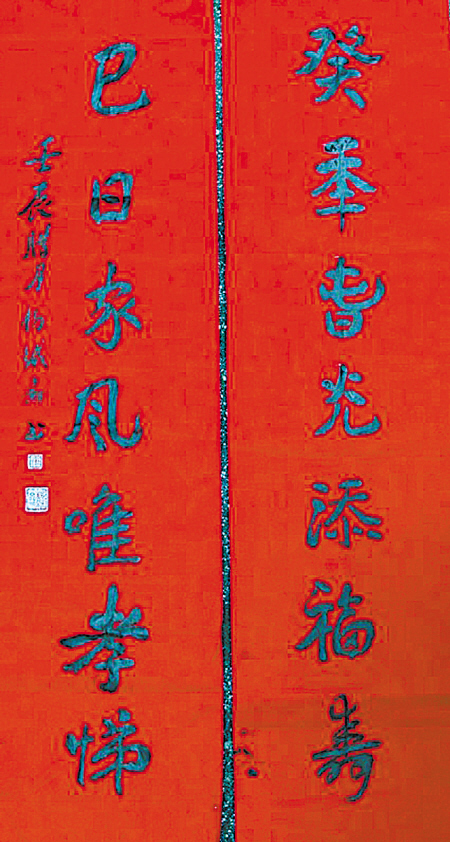 癸年春光添福寿
巳日家风唯孝悌
壬辰腊月杨书